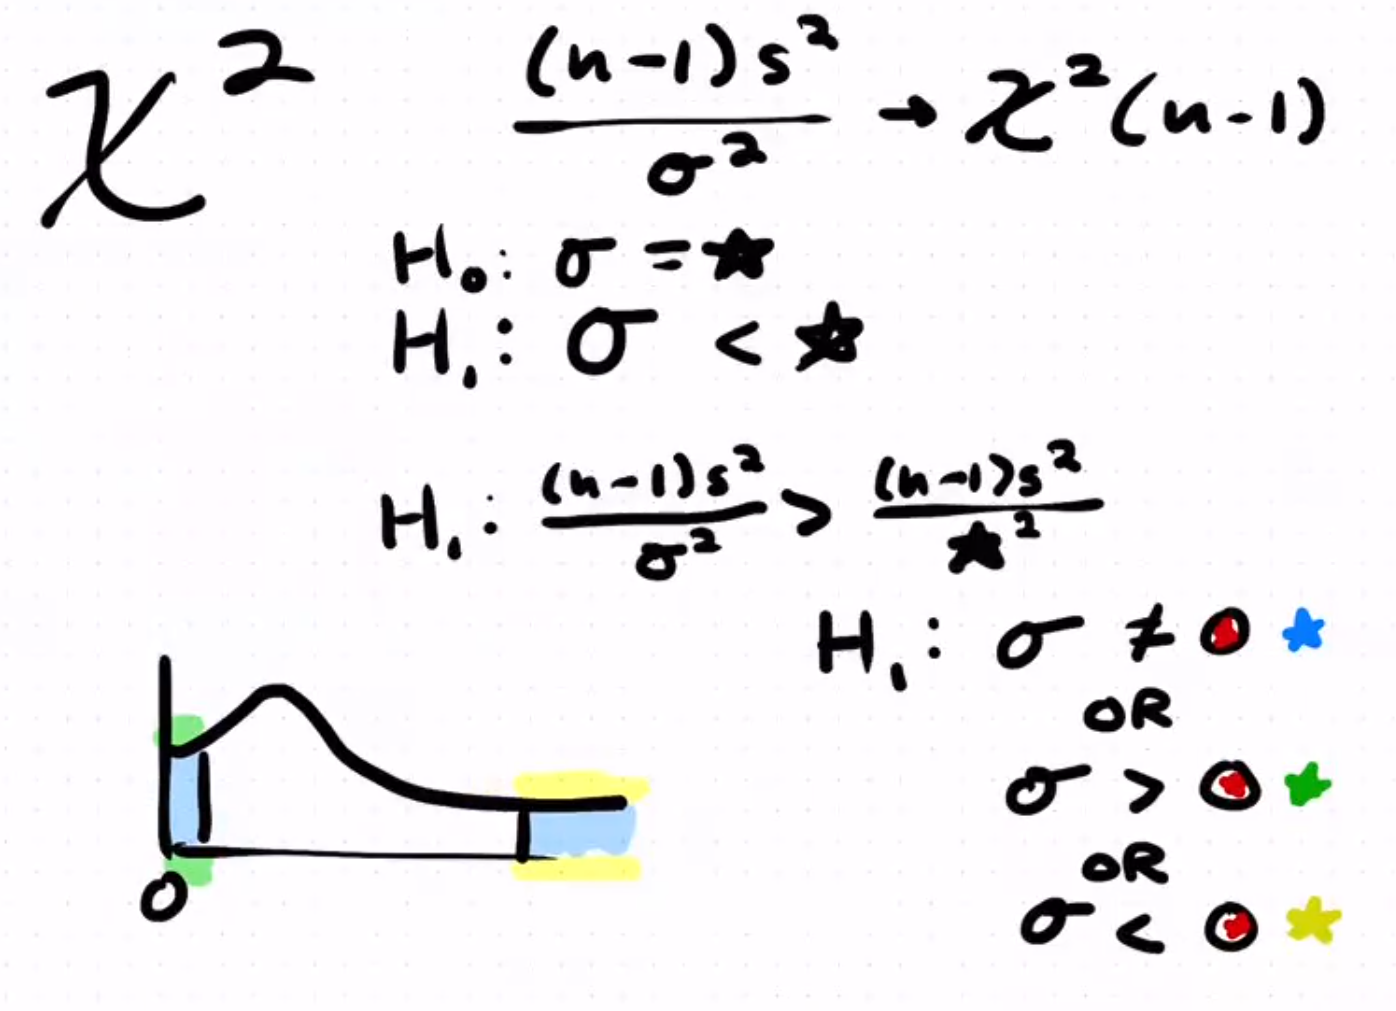 χ² (n-1)s²/σ² → χ²(n-1)
H₀: σ = ★
H₁: σ < ★
H₁: (n-1)s²/σ² > (n-1)s²/★²
H₁: σ ≠
OR
σ >
OR
σ <
0